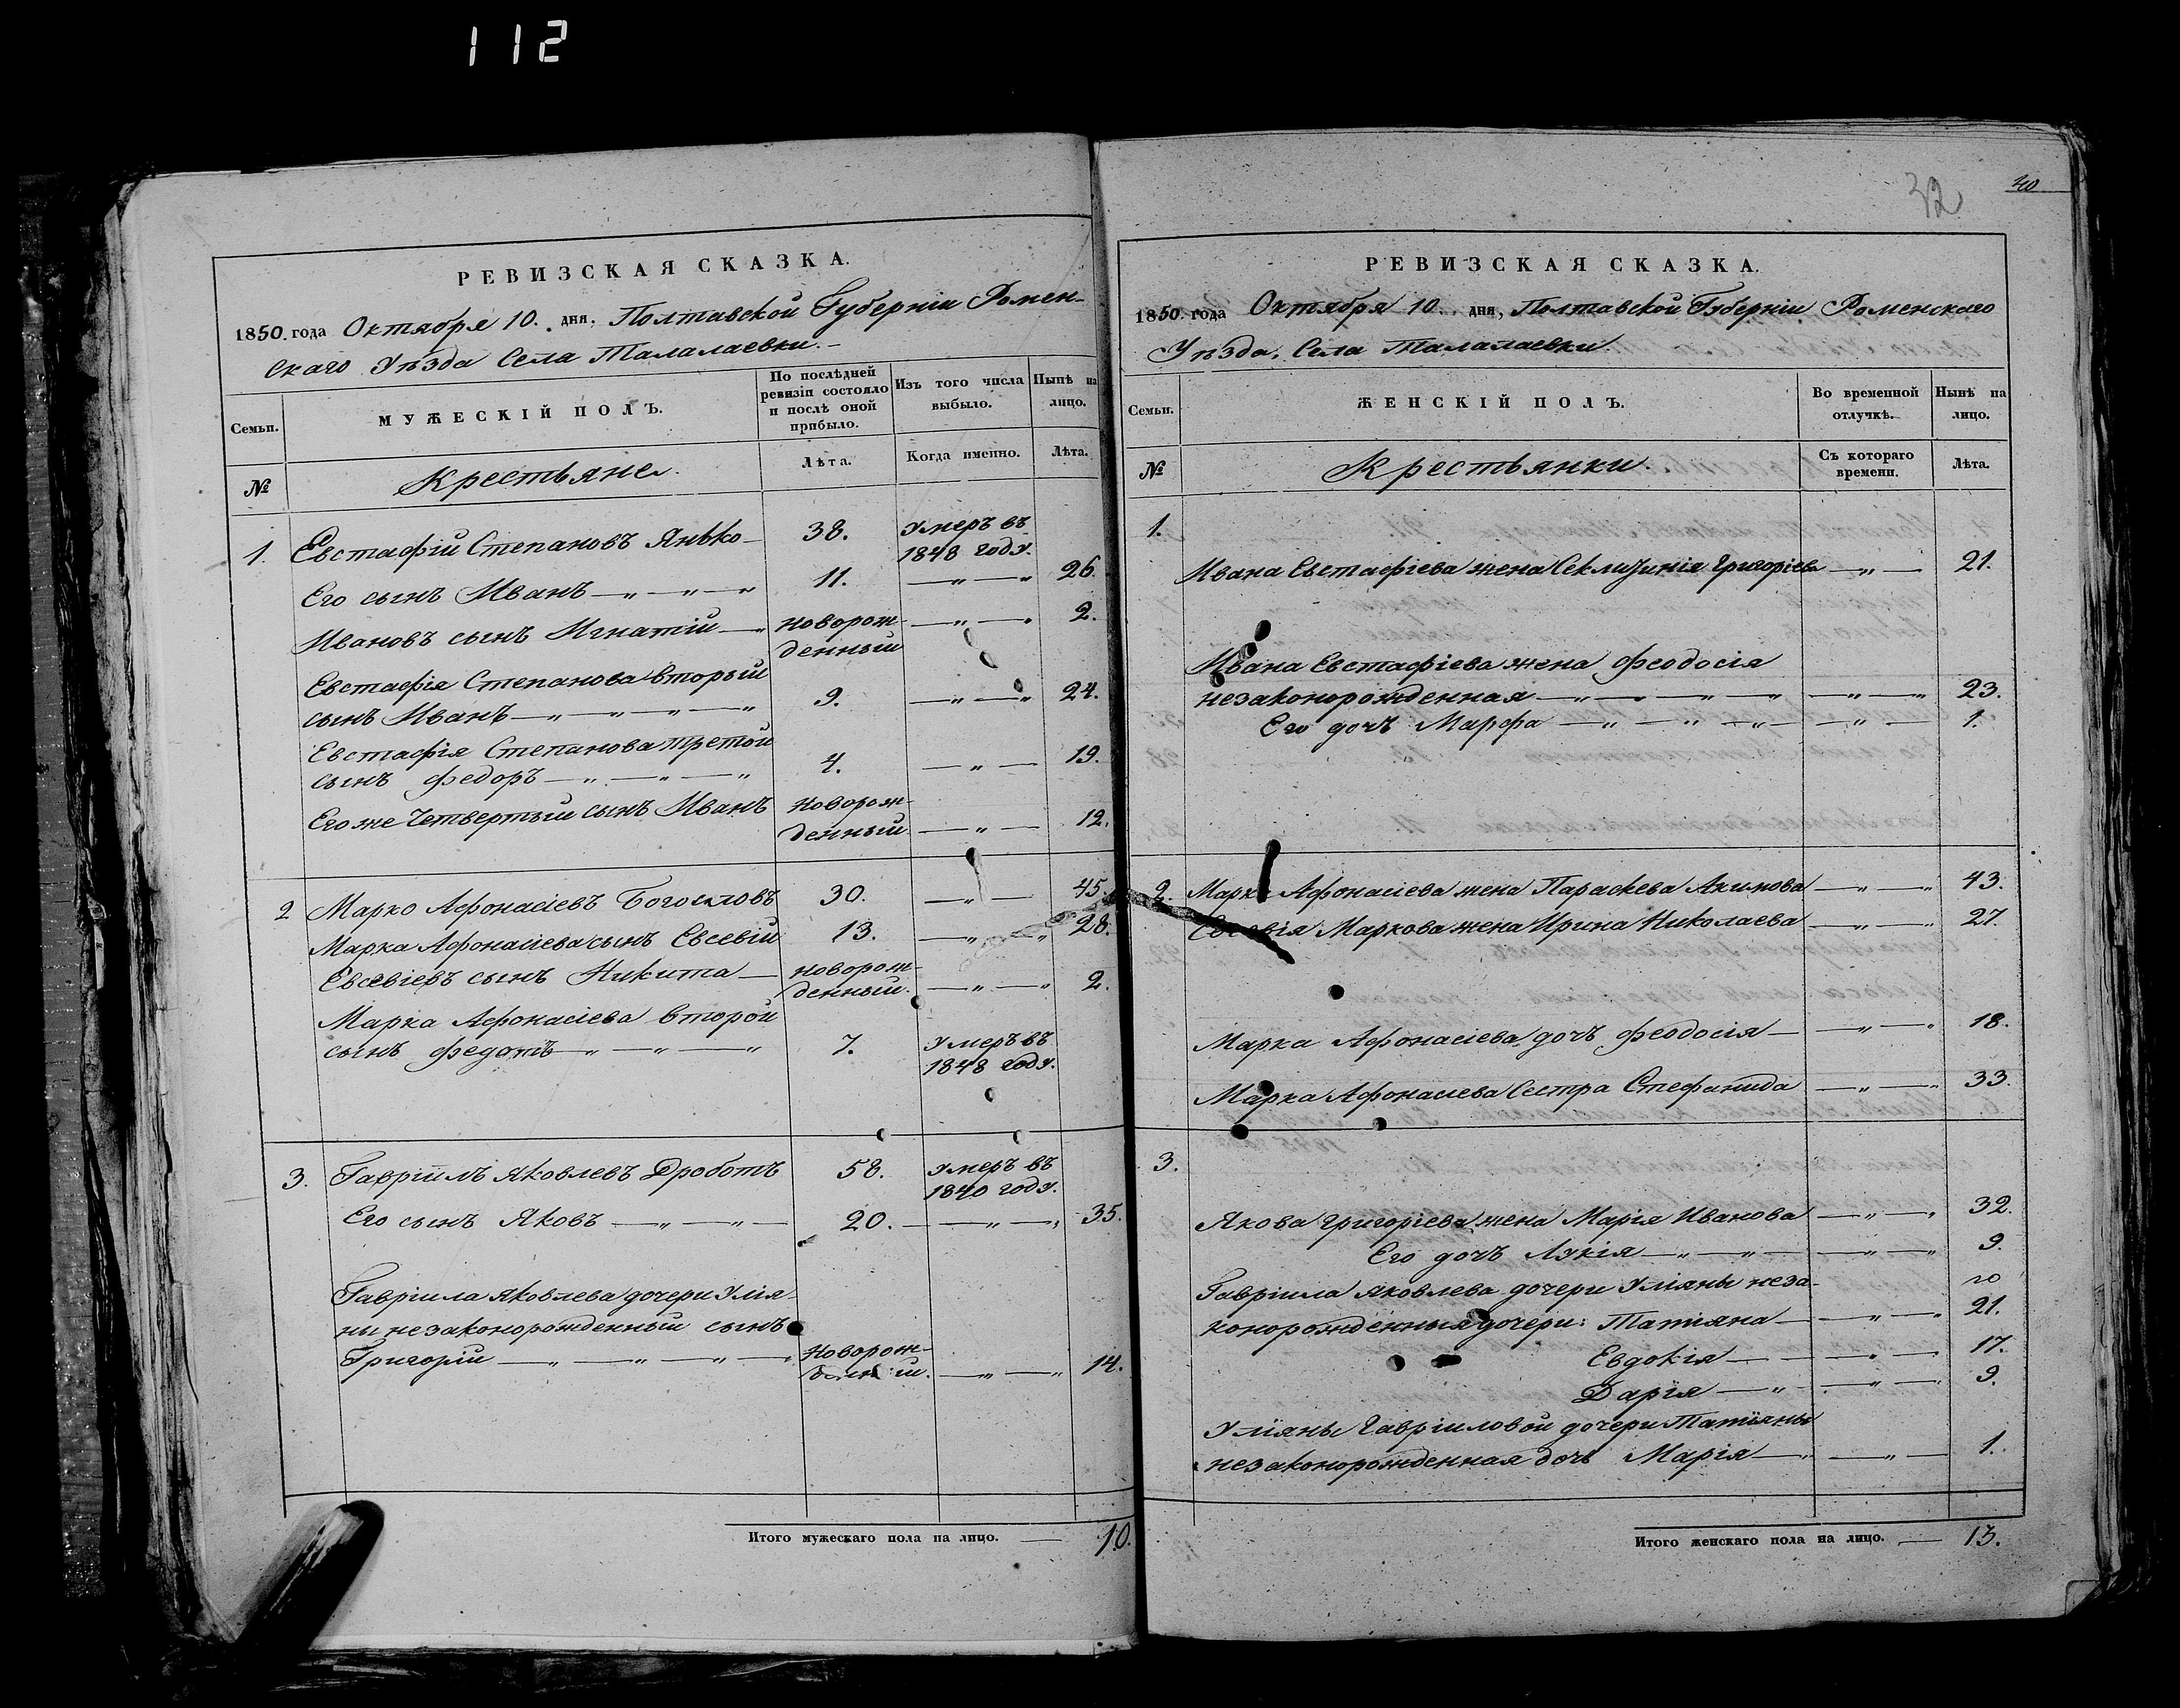 112
32
40
РЕВИЗСКАЯ СКАЗКА.
1850. года Октября 10. дня, Полтавской Губерніи Ромен-
скаго Уѣзда Села Талалаевки.
Семьи.
МУЖЕСКІЙ ПОЛЪ.
По послѣдней ревизіи состояло и послѣ оной прибыло.
Изъ того числа выбыло.
Нынѣ на лицо.
№
Крестьяне.
Лѣта.
Когда именно.
Лѣта.
1. Евстафій Степановъ Янько 38. Умеръ въ
1848 году.
Его сынъ Иванъ 11. 26.
Ивановъ сынъ Игнатій новорож- 2.
денный
Евстафія Степанова вторый
сынъ Иванъ 9. 24.
Евстафія Степанова третой
сынъ Федоръ 4. 19.
Его же Четвертый сынъ Иванъ новорож-
денный 12.
2 Марко Афонасіевъ Богословъ 30. 45.
Марка Афонасіева сынъ Евсевій 13. 28.
Евсевіевъ сынъ Никита новорож-
денный. 2.
Марка Афонасіева второй
сынъ Федотъ 7. Умеръ въ
1848 году.
3. Гавріилъ Яковлевъ Дроботъ 58. Умеръ въ
1840 году.
Его сынъ Яковъ 20. 35.
Гавріила Яковлева дочери Улія-
ны незаконорожденный сынъ
Григорій Новорож- 14.
Итого мужескаго пола на лицо. 10.
РЕВИЗСКАЯ СКАЗКА.
1850. года Октября 10. дня, Полтавской Губерніи Роменскаго
Уѣзда, Села Талалаевки.
Семьи.
ЖЕНСКІЙ ПОЛЪ.
Во временной отлучкѣ.
Нынѣ на лицо.
№
Крестьянки.
Съ котораго времени.
Лѣта.
1.
Ивана Евстафіева жена Григоріева 21.
Ивана Евстафіева жена Феодосія
незаконорожденная 23.
Его дочъ Марфа 1.
2. Марка Афонасіева жена Параскева Акимова 43.
Евсевія Маркова жена Ирина Николаева 27.
Марка Афонасіева дочъ Феодосія 18.
Марка Афонасіева Сестра Стефанида 33.
3.
Якова Григоріева жена Марія Иванова 32.
Его дочъ Лукія 9.
Гавріила Яковлева дочери Уліяны неза-
конорожденныя дочери: Татіяна 21.
Евдокія 17.
Дарія 9.
Уліяны Гавріиловой дочери Татіяны
незаконорожденная дочь Марія 1.
Итого женскаго пола на лицо. 13.